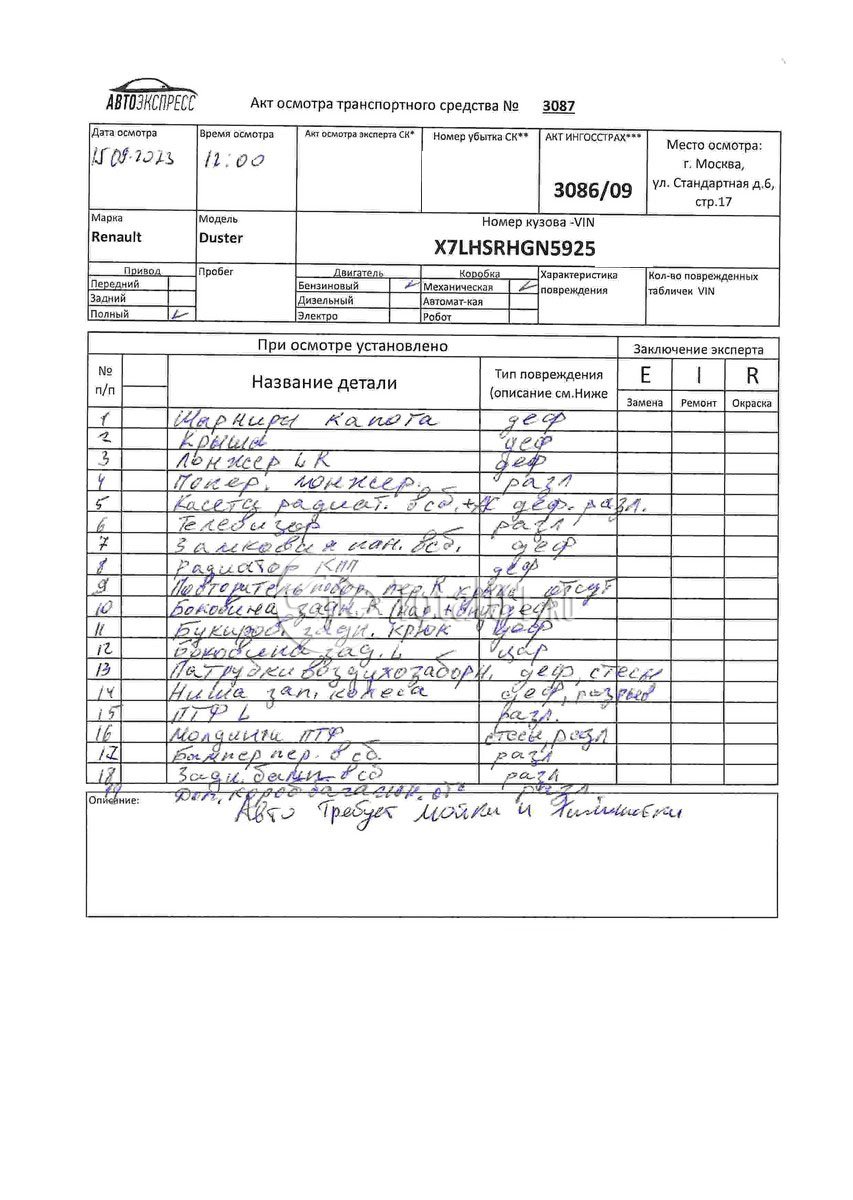 АВТОЭКСПРЕСС
Акт осмотра транспортного средства № 3087
Дата осмотра Время осмотра Акт осмотра эксперта СК* Номер убытка СК** АКТ ИНГОССТРАХ*** Место осмотра:
15.09.2023 12:00 3086/09 г. Москва,
ул. Стандартная д.6,
стр.17
Марка Модель Номер кузова -VIN
Renault Duster X7LHSRHGN5925
Привод Пробег Двигатель Коробка Характеристика повреждения Кол-во поврежденных табличек VIN
Передний Бензиновый ✓ Механическая ✓
Задний Дизельный Автомат-кая
Полный ✓ Электро Робот
При осмотре установлено Заключение эксперта
№ п/п Название детали Тип повреждения (описание см.Ниже E I R
Замена Ремонт Окраска
1 Шарниры капота деф
2 Крыша деф
3 Лонжер L R деф
4 Попер. лонжер. разл
5 Касета радиат. в сб. деф. разл.
6 Телевизор разл
7 Замковая пан. в сб. деф
8 Радиатор КПП деф
9 Повторитель повор. пер. R крыла отсут
10 Боковина задн. R деф
11 Буксиров. задн. крюк деф
12 Боковина зад. L цар
13 Патрубки воздухозаборн. деф, стесы
14 Ниша зап. колеса деф, разрыв
15 ПТФ L разл.
16 Молдинги ПТФ стесы, разл
17 Бампер пер. в сб. разл
18 Задн. бамп. в сб разл
19 Доп. короб багажн. отс разл.
Описание: Авто Требует Мойки и Химчистки